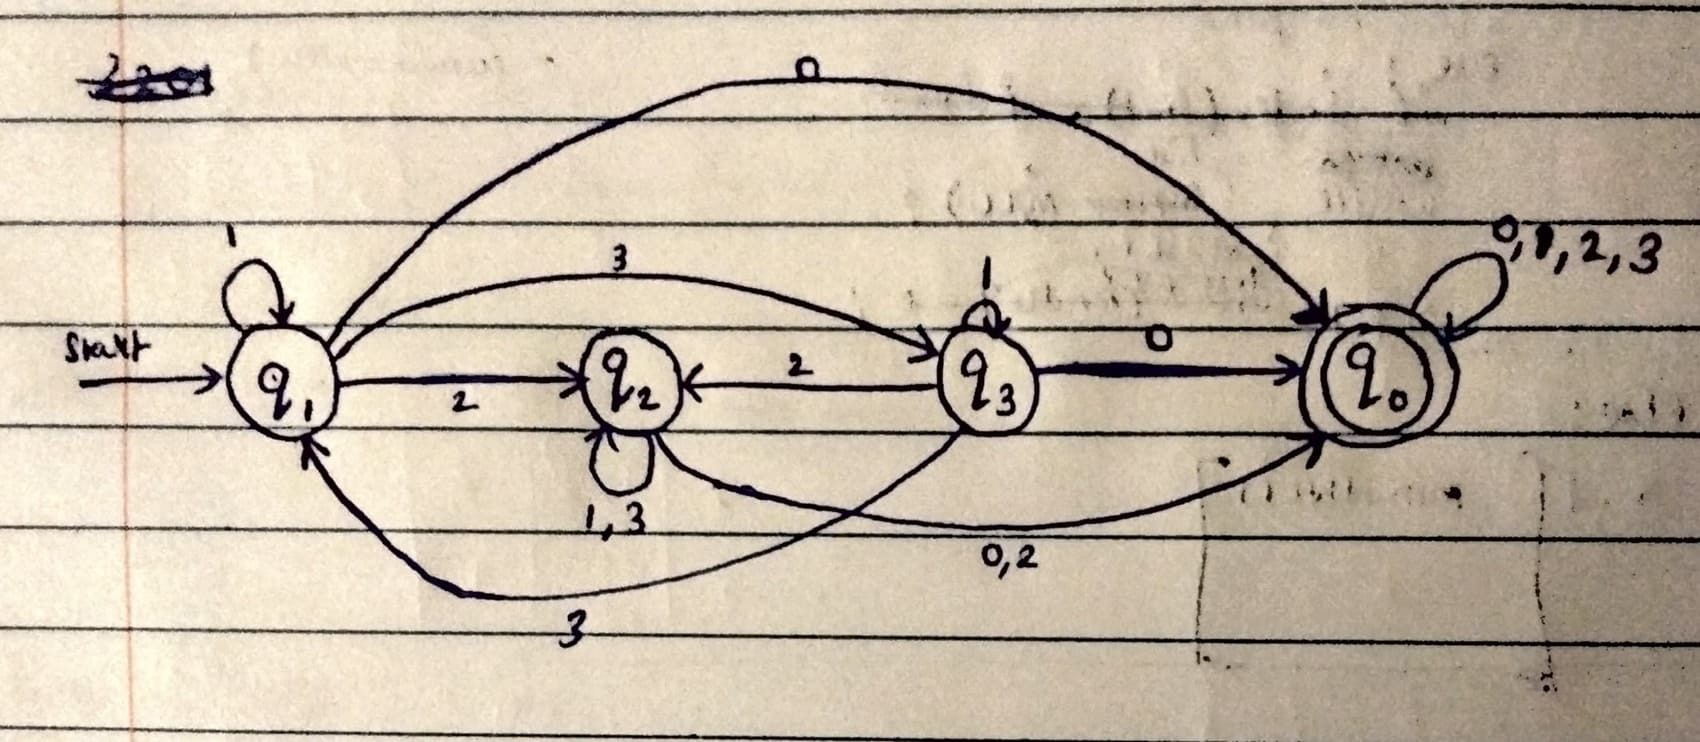 0
1
3
1
0,1,2,3
Start
q1
2
q2
2
q3
0
q0
1,3
0,2
3